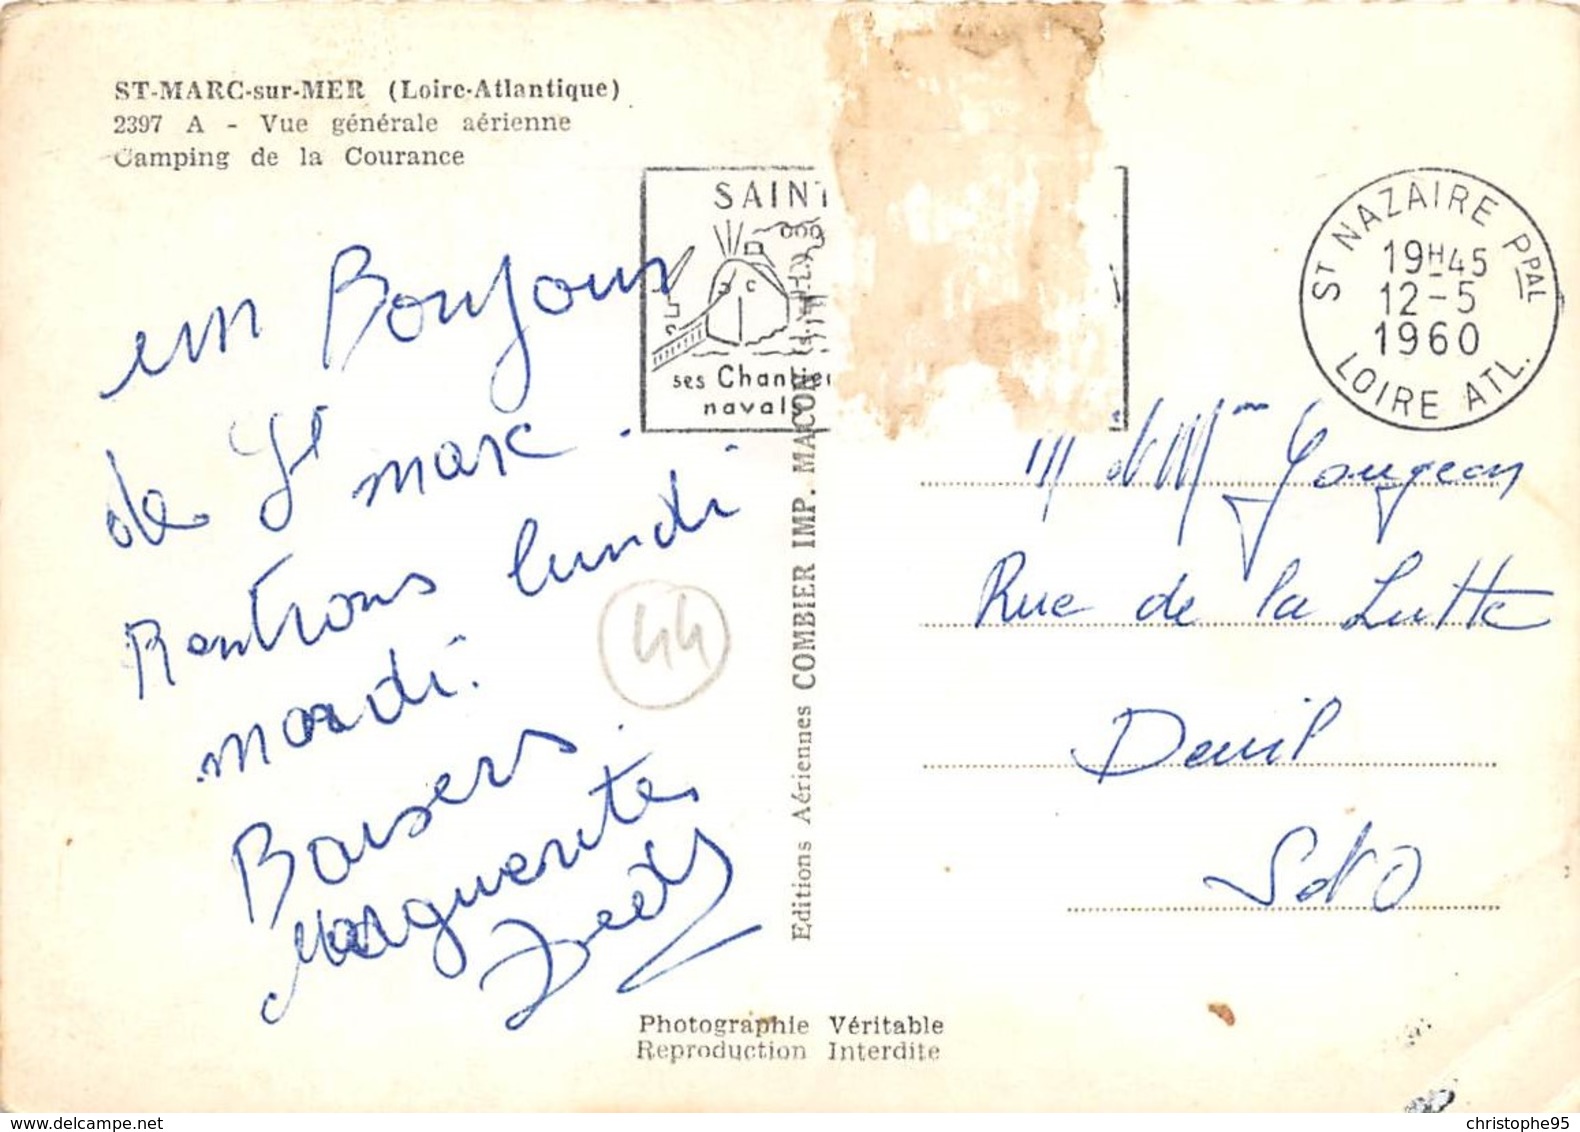 ST-MARC-sur-MER (Loire-Atlantique)
2397 A - Vue générale aérienne
Camping de la Courance
SAINT
ses Chantiers
navals
ST NAZAIRE PPAL
19H45
12-5
1960
LOIRE ATL.
un Bonjour
de St marc.
Rentrons lundi
mardi.
Baisers.
Marguerite
44
Editions Aériennes COMBIER IMP. MACON
M et Mme Gougeon
Rue de la Lutte
Deuil
S et O
Photographie Véritable
Reproduction Interdite
christophe95